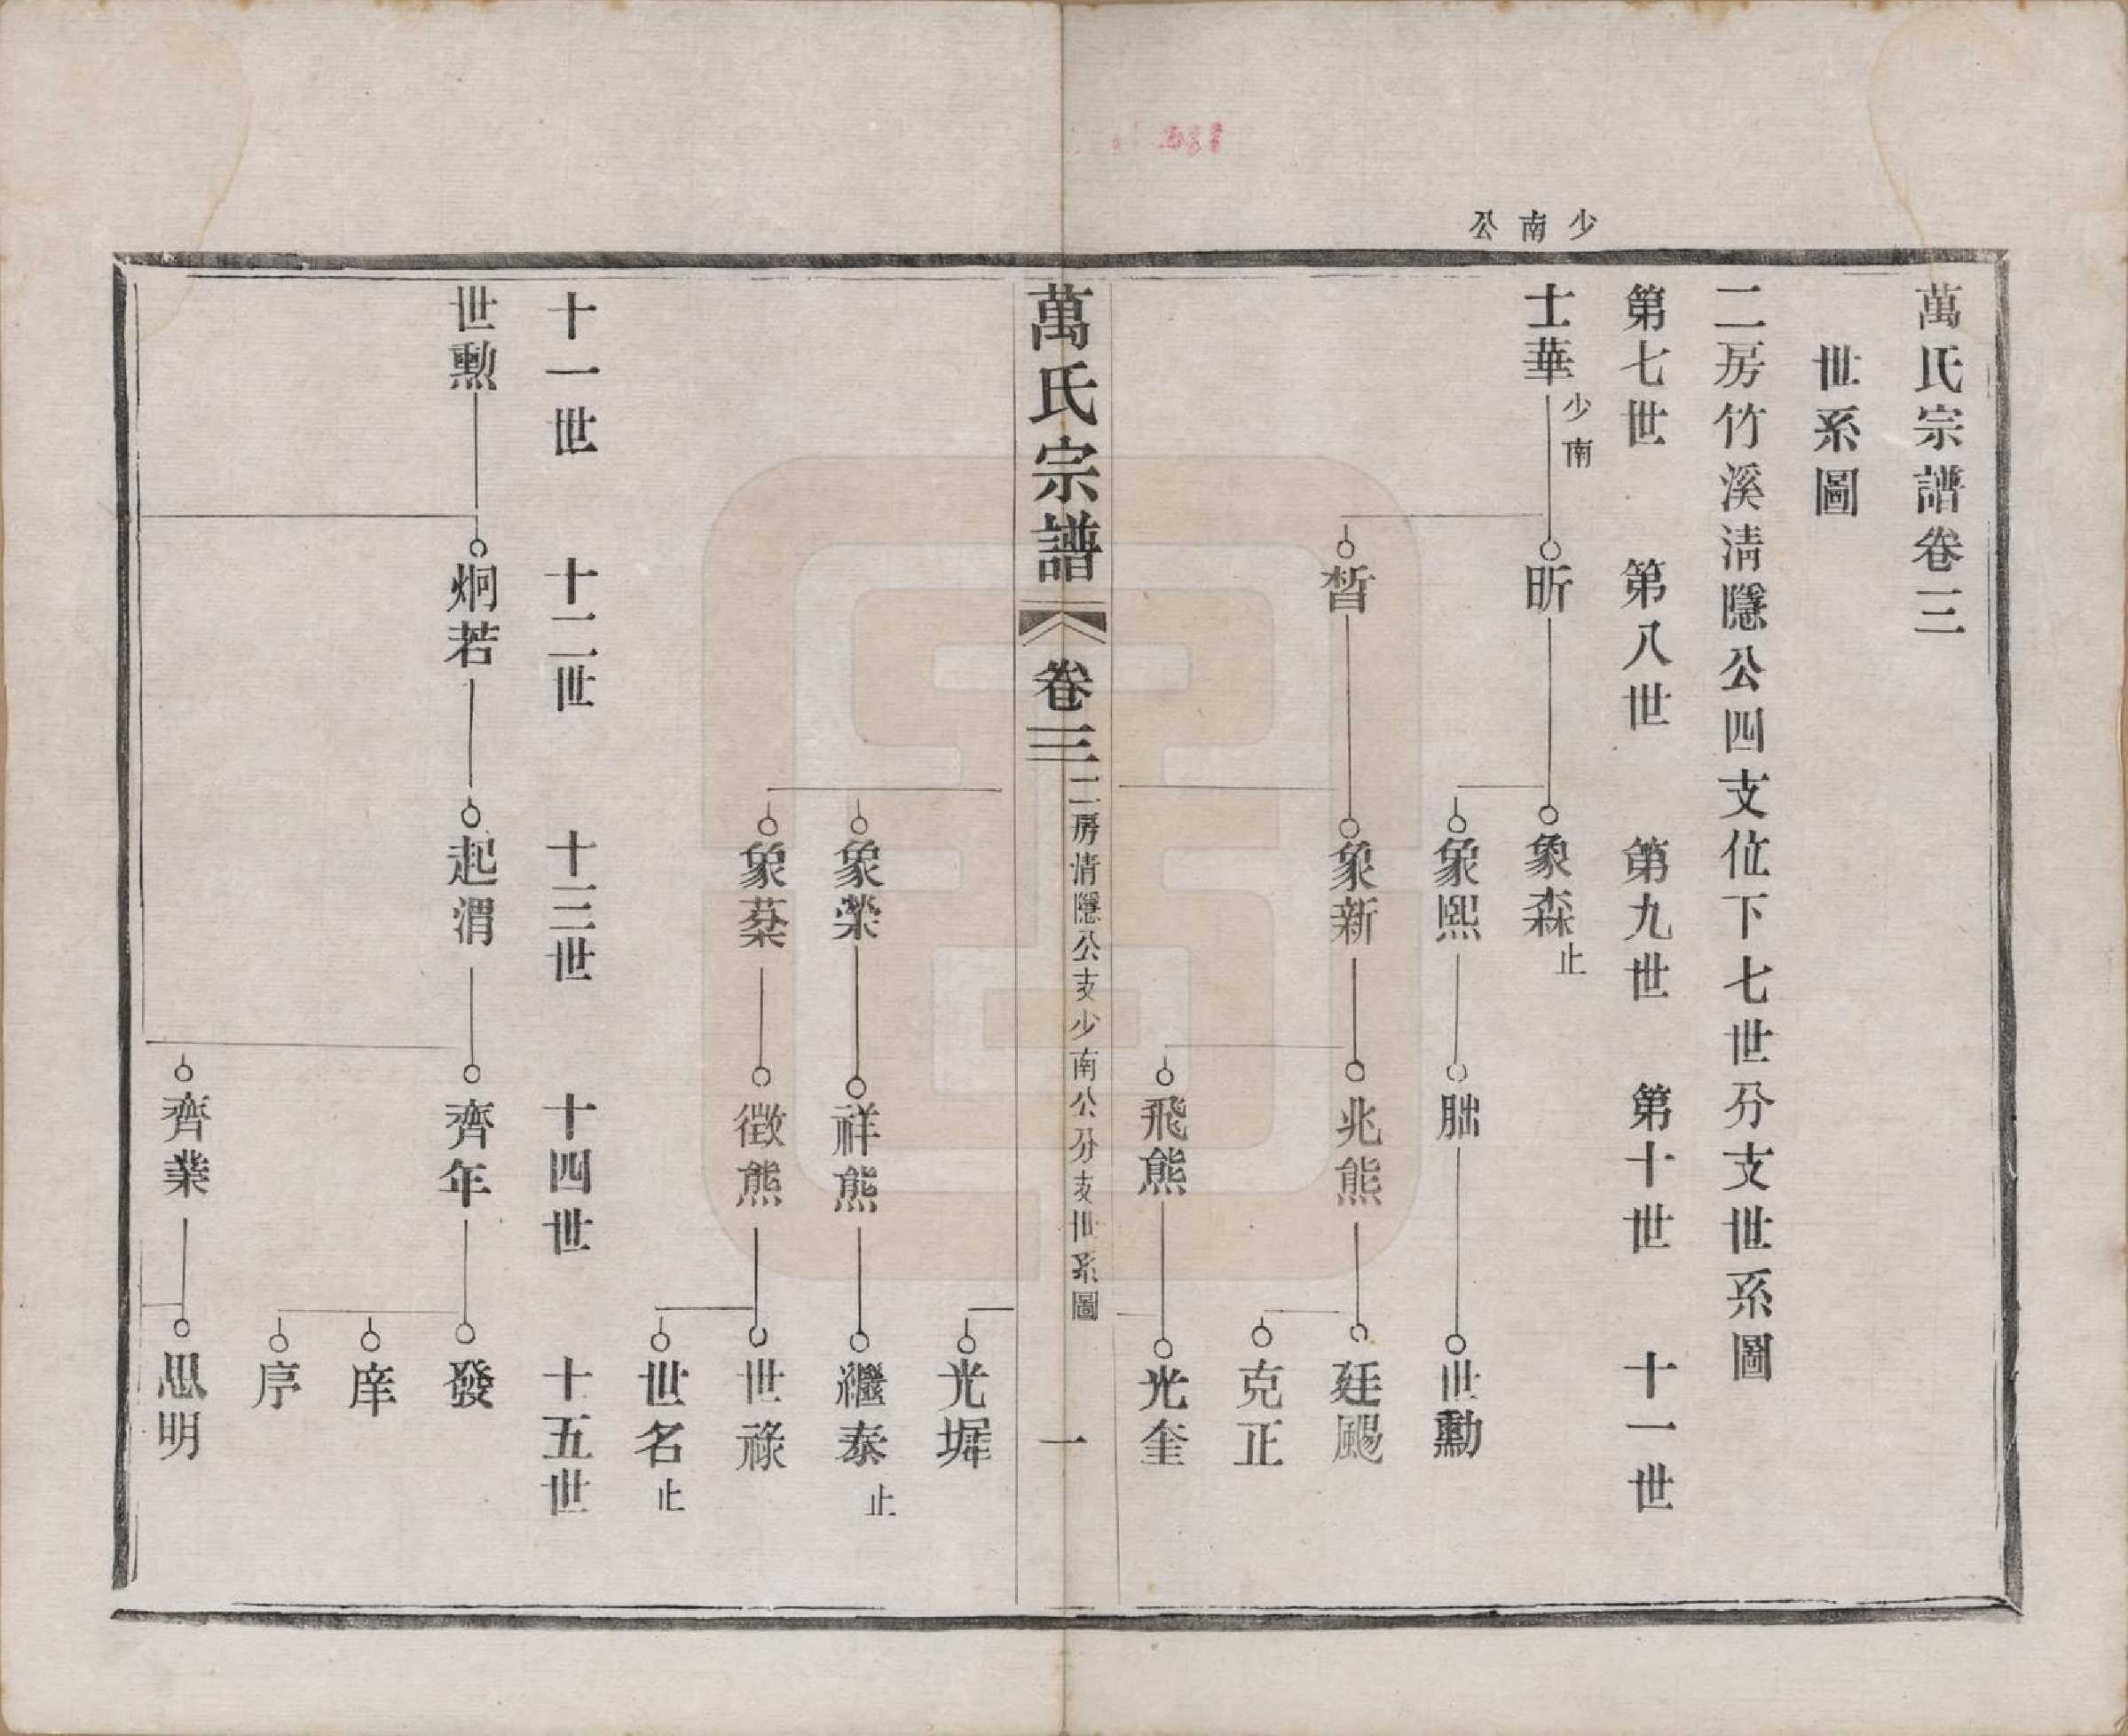 少南公
萬氏宗譜卷三
世系圖
二房竹溪清隱公四支位下七世分支世系圖
第七世 第八世 第九世 第十世 十一世
士華 少南 昕 象森 止
象熙 朏 世勳
晳 象新 兆熊 廷颺
克正
飛熊 光奎
萬氏宗譜 卷三 二房清隱公支少南公分支世系圖 一
光墀
象榮 祥熊 繼泰 止
象棻 徵熊 世祿
世名 止
十一世 十二世 十三世 十四世 十五世
世勲 炯若 起渭 齊年 發
庠
序
齊業 思明